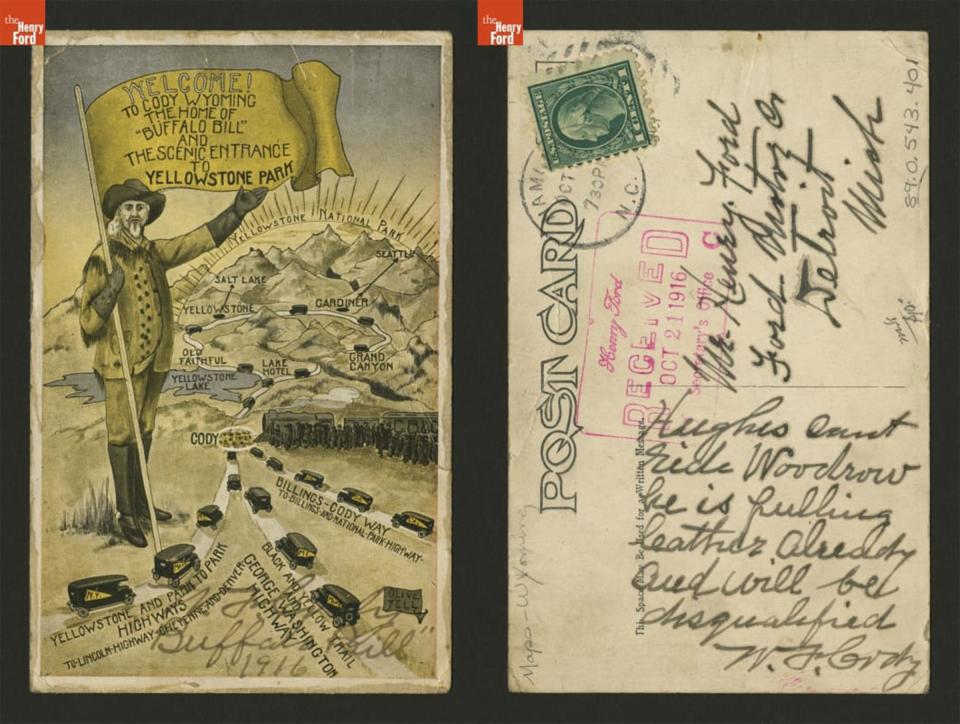 the
Henry
Ford
WELCOME!
TO CODY WYOMING
THE HOME OF
"BUFFALO BILL"
AND
THE SCENIC ENTRANCE
TO
YELLOWSTONE PARK
YELLOWSTONE NATIONAL PARK
SEATTLE
SALT LAKE
YELLOWSTONE
GARDINER
OLD
FAITHFUL
LAKE
HOTEL
GRAND
CANYON
YELLOWSTONE
LAKE
CODY
BILLINGS-CODY WAY
TO BILLINGS-AND-NATIONAL-PARK-HIGHWAY-
YELLOWSTONE AND PARK TO PARK
HIGHWAYS
TO-LINCOLN-HIGHWAY-CHEYENNE-AND-DENVER
BLACK AND YELLOW TRAIL
GEORGE WASHINGTON
HIGHWAY
OLIVE
FELL
"Buffalo Bill"
1916
the
Henry
Ford
OCT
730P
N.C.
POST CARD
Henry Ford
RECEIVED
OCT 21 1916
Secretary's Office
Mr Henry Ford
Ford Motor Co
Detroit
Mich
89.0.543.401
This Space May Be Used for a Written Message
Hughes cant
ride Woodrow
he is pulling
leather already
and will be
disqualified
W. F. Cody
Maps-Wyoming